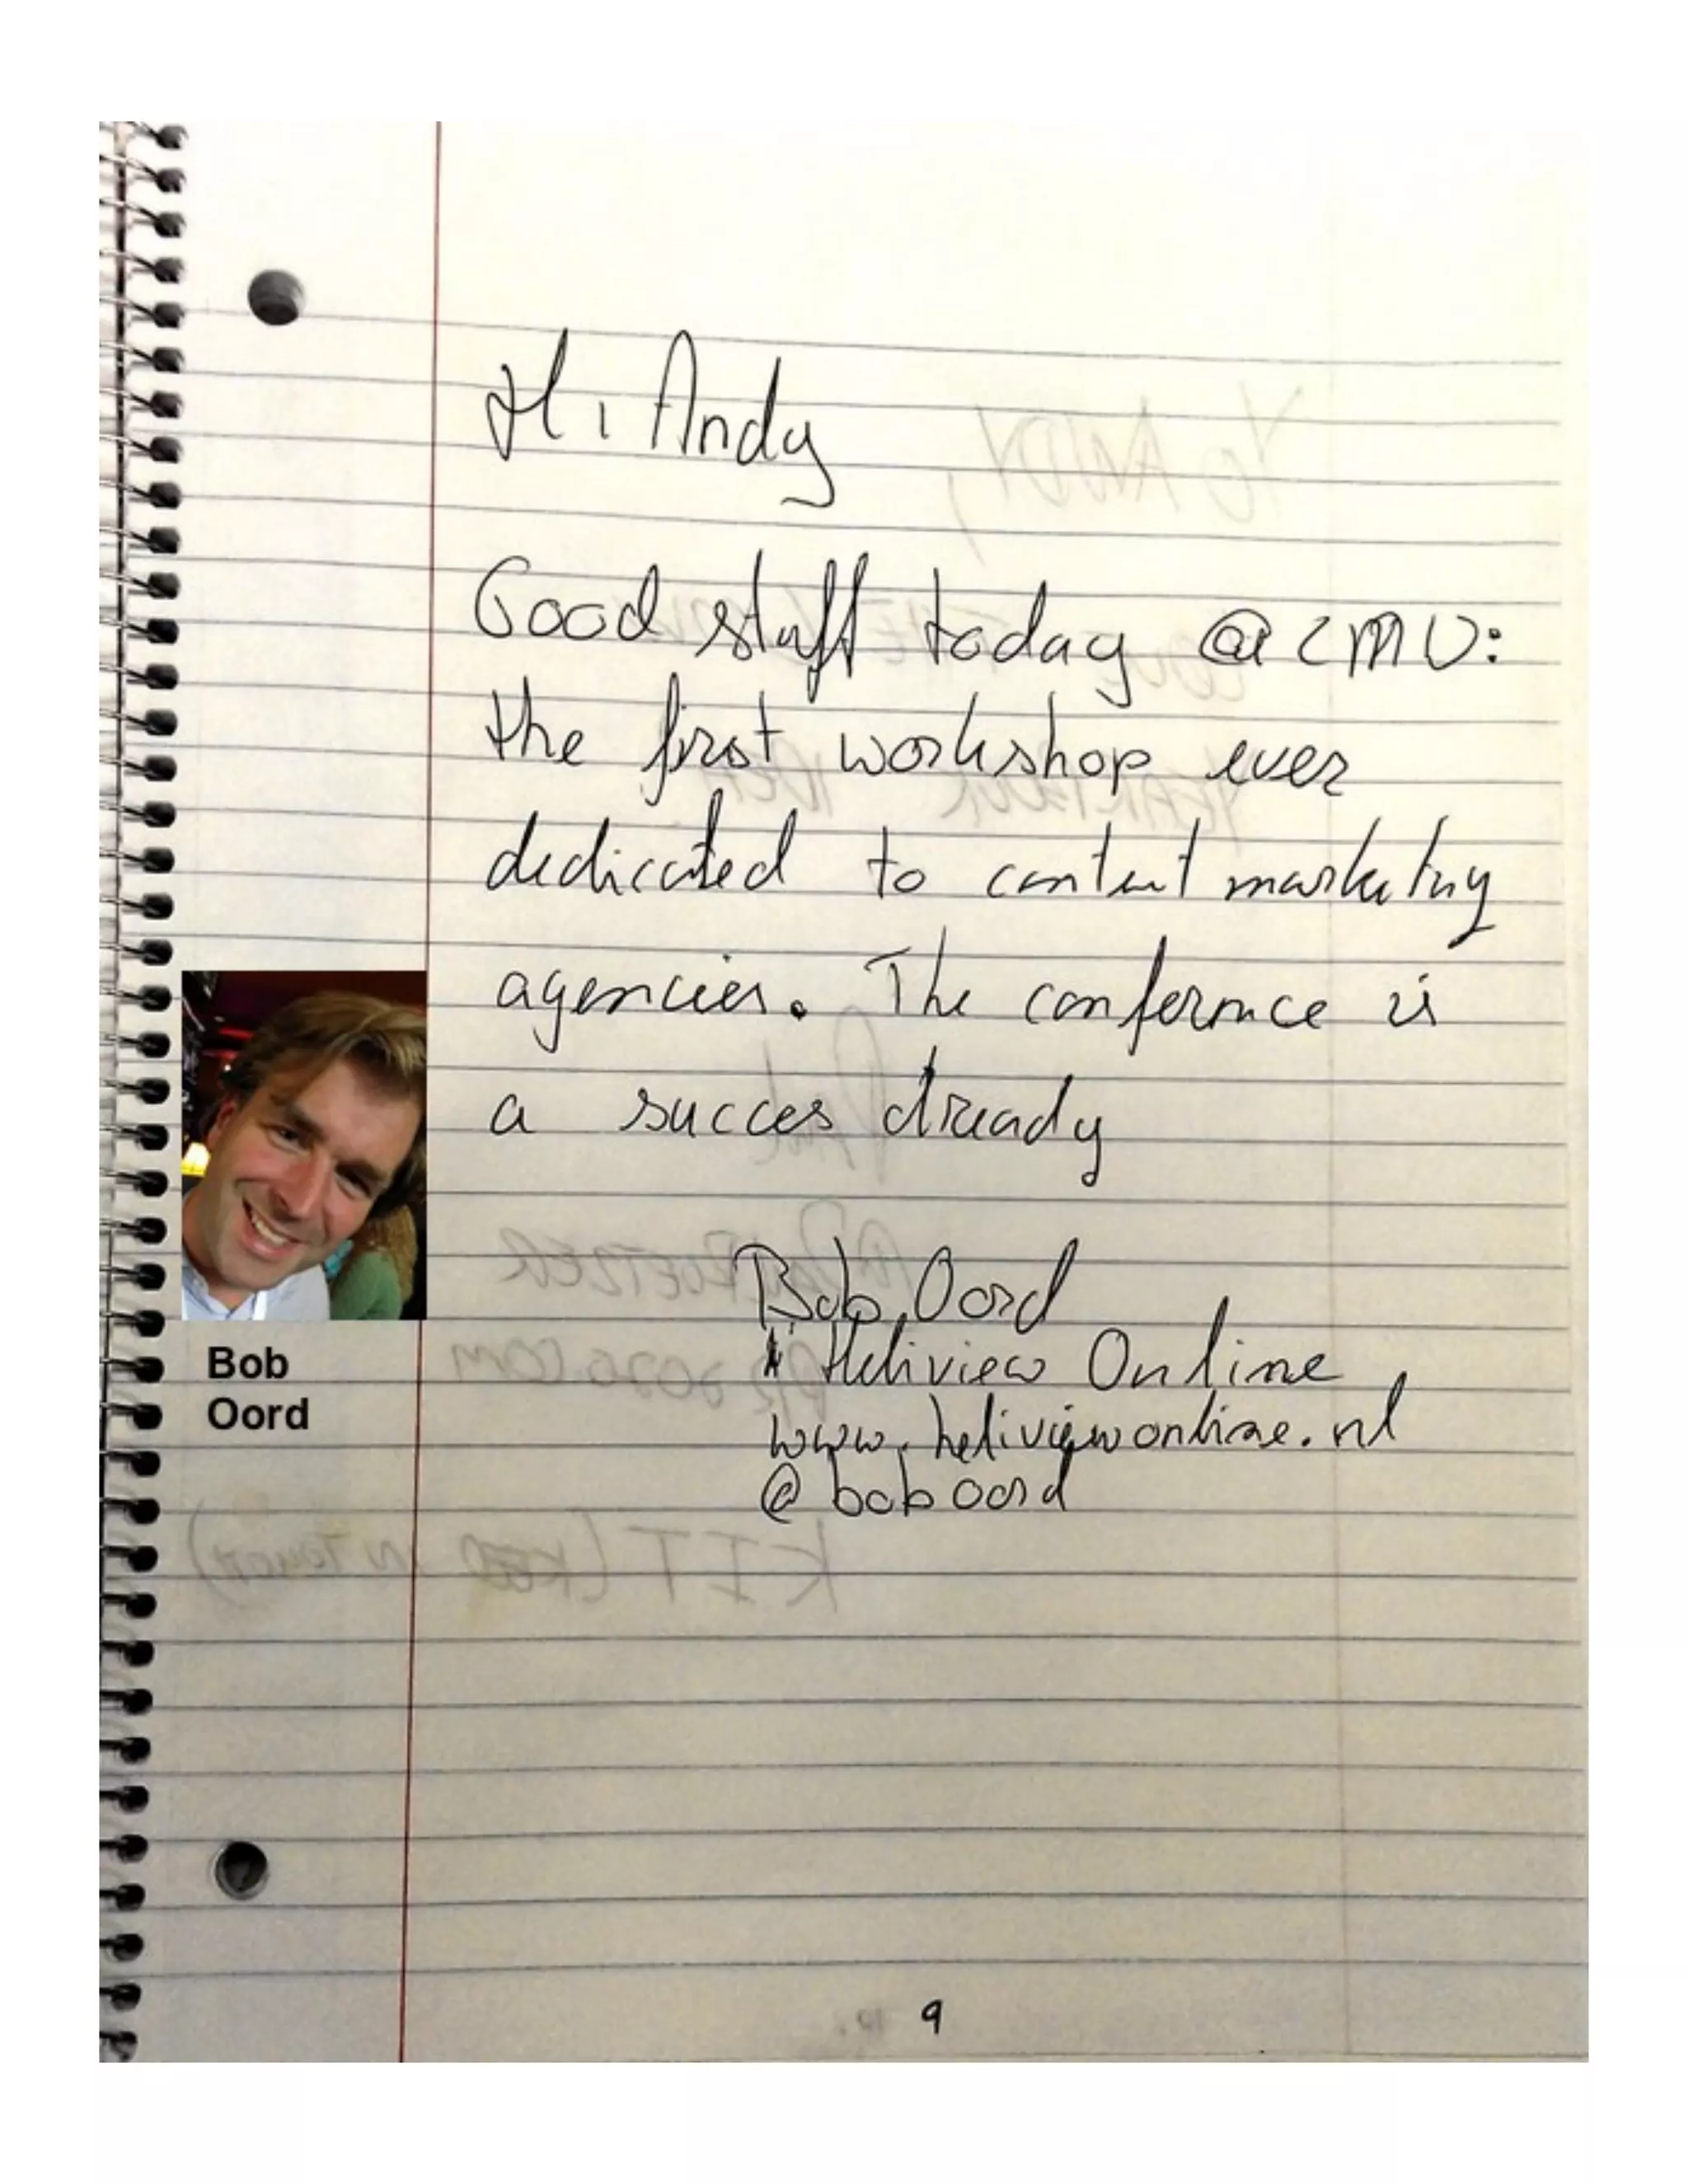 Hi Andy
Good stuff today @ CMU:
the first workshop ever
dedicated to content marketing
agencies. The conference is
a succes already
Bob Oord
Heliview Online
www.heliviewonline.nl
@boboord
Bob
Oord
9